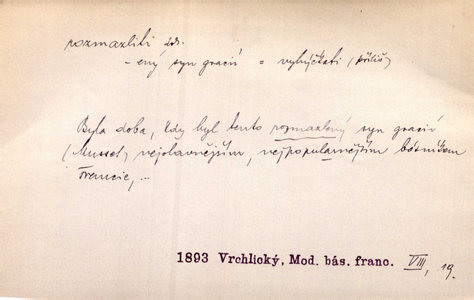 rozmazliti dok.
– ený syn gracií = vyhýčkati (příliš)
Byla doba, kdy byl tento rozmazlený syn gracií
(Musset) nejslavnějším, nejpopulárnějším básníkem
Francie, ...
1893 Vrchlický, Mod. bás. franc. VIII, 19.